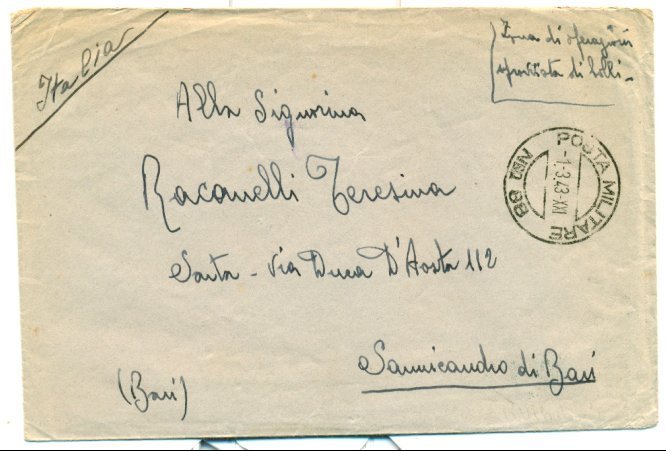 Italia
Zona di operazioni
sprovvista di bolli -
Alla Signorina
Racanelli Teresina
Santa - Via Duca D'Aosta 112
Sannicandro di Bari
(Bari)
POSTA MILITARE
-1.3.43-XXI